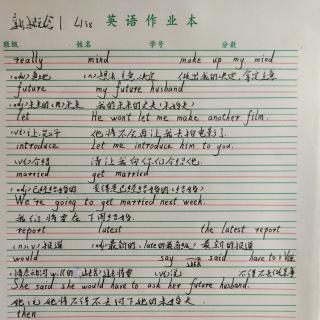 新概念1 L138 英语作业本
班级 姓名 学号 分数
really mind make up my mind
(adv)真地 (n)想法,主意,决定 做出我的决定,拿定主意
future my future husband
(adj)未来的 (n)未来 我的未来的丈夫(未婚夫)
let He won't let me make another film.
(vt)让,允许 他将不会再让我去拍电影了.
introduce Let me introduce him to you.
(vt)介绍 请让我向你们介绍他.
married get married
(adj)已经结婚的 变得是已经结婚的(结婚)
We're going to get married next week.
我们将要在下周结婚.
report latest the latest report
(n)(v)报道 (adj)最新的,late的最高级 最新的报道
would say said have to + V原
will的 (vt)说 不得不去做某事
She said she would have to ask her future husband.
她说她将不得不去问下她的未婚夫.
then